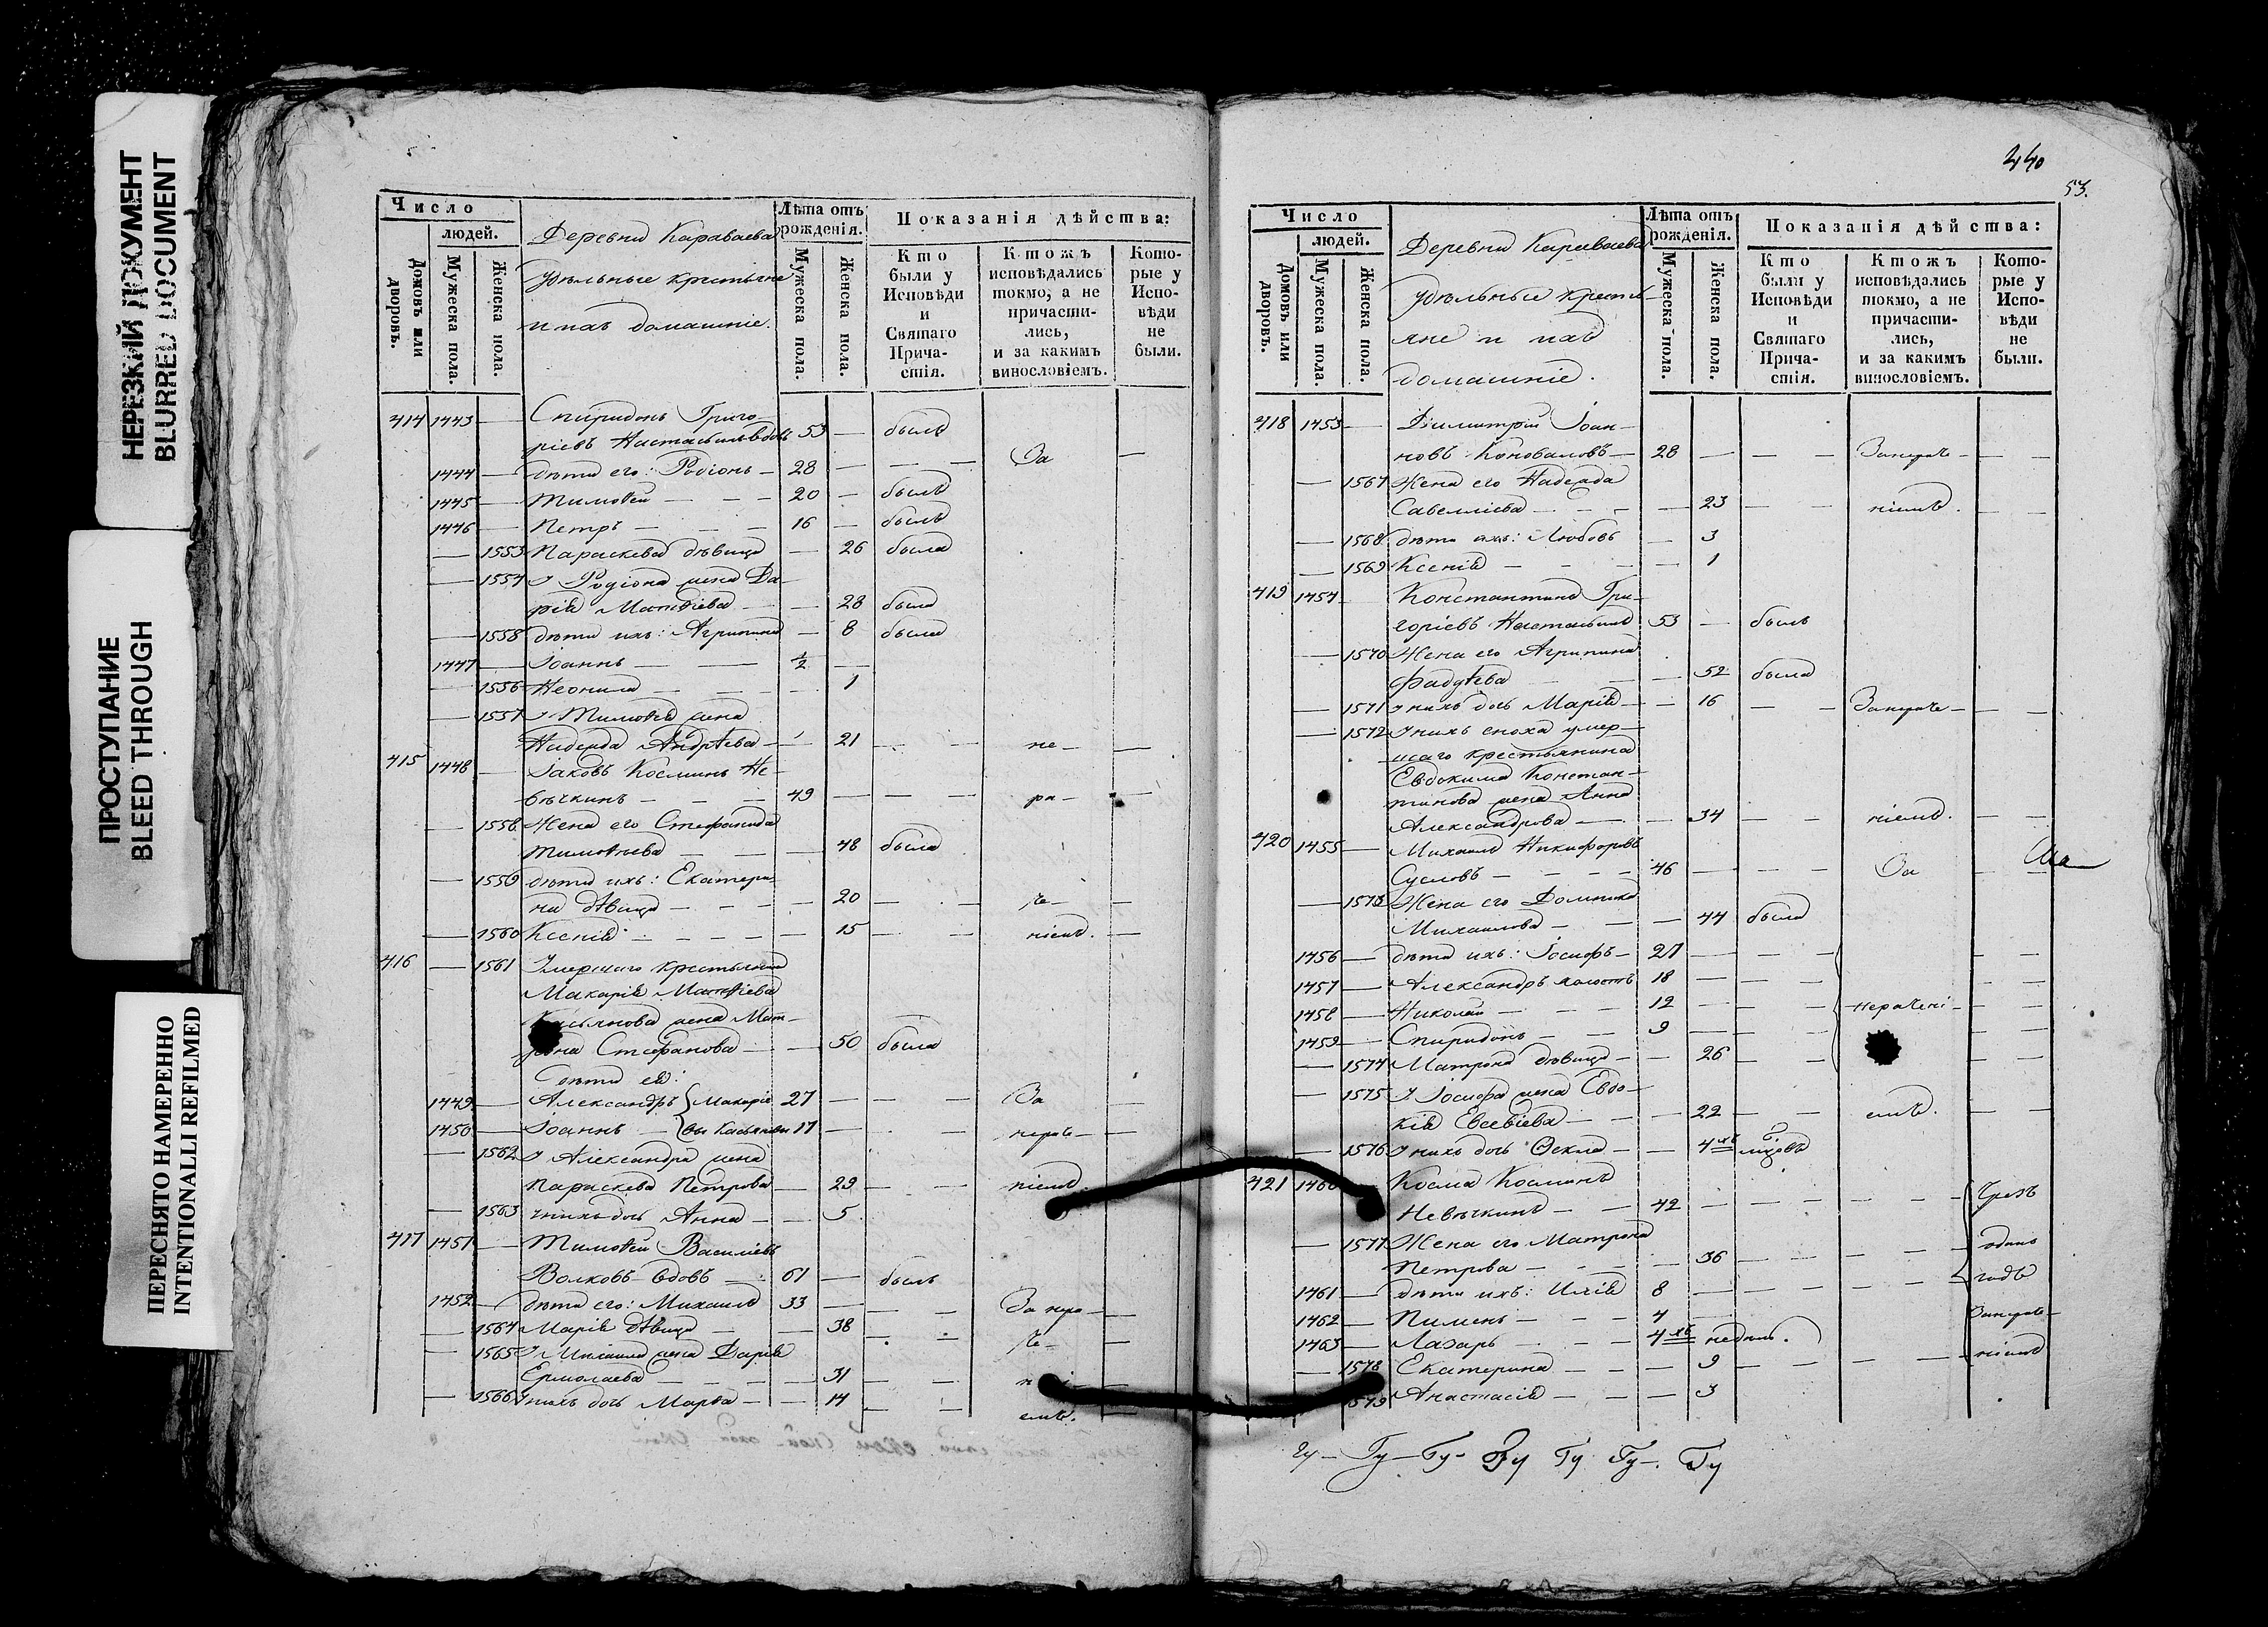 НЕРЕЗКИЙ ДОКУМЕНТ
BLURRED DOCUMENT
ПРОСТУПАНИЕ
BLEED THROUGH
ПЕРЕСНЯТО НАМЕРЕННО
INTENTIONALLI REFILMED
Число
людей.
Домовъ или дворовъ.
Мужеска пола.
Женска пола.
Деревни Караваева
удѣльные крестьяне
и ихъ домашніе.
Лѣта отъ рожденія.
Мужеска пола.
Женска пола.
Показанія дѣйства:
Кто были у Исповѣди и Святаго Прича-стія.
Ктожъ исповѣдались токмо, а не причасти-лись, и за какимъ винословіемъ.
Кото-рые у Испо-вѣди не были.
414 1443 — Спиридонъ Григо-
ріевъ вдовъ 53 — былъ
1444 — дѣти его: Родіонъ — 28 — — — За —
1445 — Тимоѳей — — — 20 — былъ
1446 — Петръ — — — 16 — былъ
— 1553 Параскева дѣвица — 26 была
— 1554 У Родіона жена Да-
рія Матѳіева — — 28 была
— 1558 дѣти ихъ: Агрипина — 8 была
1447 — Іоаннъ — — ½ —
— 1556 Неонила — — — 1
— 1557 У Тимоѳея жена
Надежда Андрѣева — — 21 — — не — —
415 1448 — Іаковъ Косминъ Не-
вѣчкинъ — — — 49 — — — ра — —
— 1558 Жена его Стефанида
Тимоѳеева — — — 48 была
— 1559 дѣти ихъ: Екатери-
на дѣвица — — — — 20 — — че — —
— 1560 Ксенія — — — — — 15 — — ніемъ. —
416 — 1561 Умершаго крестьянина
Макарія Матѳіева
Касьянова жена Мат-
рона Стефанова — — 50 была
дѣти ея:
1449 — Александръ } Макарie- 27 — — — За —
1450 — Іоаннъ — } вы Касьяновы 17 — — — нера — —
— 1562 У Александра жена
Параскева Петрова — 29 — — ніемъ
— 1563 у нихъ дочь Анна — — 5
417 1451 — Тимоѳей Василіевъ
Волковъ вдовъ — 61 — былъ
1452 — дѣти его: Михаилъ 33 — — — За нера — —
— 1564 Марія дѣвица — — 38 — — че — —
— 1565 У Михаила жена Дарія
Ермолаева — — — — 31 — —
— 1566 у нихъ дочь Марѳа — — 14 — — емъ. —
440
53.
Число
людей.
Домовъ или дворовъ.
Мужеска пола.
Женска пола.
Деревни Караваева
удѣльные крестья-
не и ихъ
домашніе.
Лѣта отъ рожденія.
Мужеска пола.
Женска пола.
Показанія дѣйства:
Кто были у Исповѣди и Святаго Прича-стія.
Ктожъ исповѣдались токмо, а не причасти-лись, и за какимъ винословіемъ.
Кото-рые у Испо-вѣди не были.
418 1453 — Димитрій Іоан-
новъ Коноваловъ — 28 — — — Занераче — — —
— 1567 Жена его Надежда
Савелліева — — — — 23 — — ніемъ. — —
— 1568 дѣти ихъ: Любовь — 3
— 1569 Ксенія — — — — 1
419 1454 — Константинъ Гри-
горіевъ 53 — былъ
— 1570 Жена его Агрипина
Фадѣева — — — 52 была
— 1571 у нихъ дочь Марія — — 16 — — Занераче — — —
— 1572 У нихъ сноха умер-
шаго крестьянина
Евдокима Констан-
тинова жена Анна
Александрова — — — 34 — — ніемъ. — —
420 1455 — Михаилъ Никифоровъ
Сусловъ — — — — 46 — — — За — —
— 1573 Жена его Домника
Михаилова — — — 44 была
1456 — дѣти ихъ: Іосифъ — 21 — — — — —
1457 — Александръ холостъ 18 — — — — —
1458 — Николай — — — 12 — — — нерачені — — —
1459 — Спиридонъ — — — 9 — — — — —
— 1574 Матрона дѣвица — — 26 — — — —
— 1575 У Іосифа жена Евдо-
кія Евсевіева — — — 22 — — емъ. — —
— 1576 У нихъ дочь Ѳекла — — 4хъ мцовъ
421 1460 — Косма Косминъ
Невѣчкинъ — — 42 — — — — — — Чрезъ
— 1577 Жена его Матрона
Петрова — — — — 36 — — — — — одинъ
1461 — дѣти ихъ: Илія 8 — — — — — — годъ
1462 — Пименъ — — — 4 — Занераче —
1463 — Лазарь — — 4хъ недѣль.
— 1578 Екатерина — — — 9 — — — — — ніемъ
1579 Анастасія — — — 3
Гу — Гу — Гу — Гу Гу Гу —. Гу